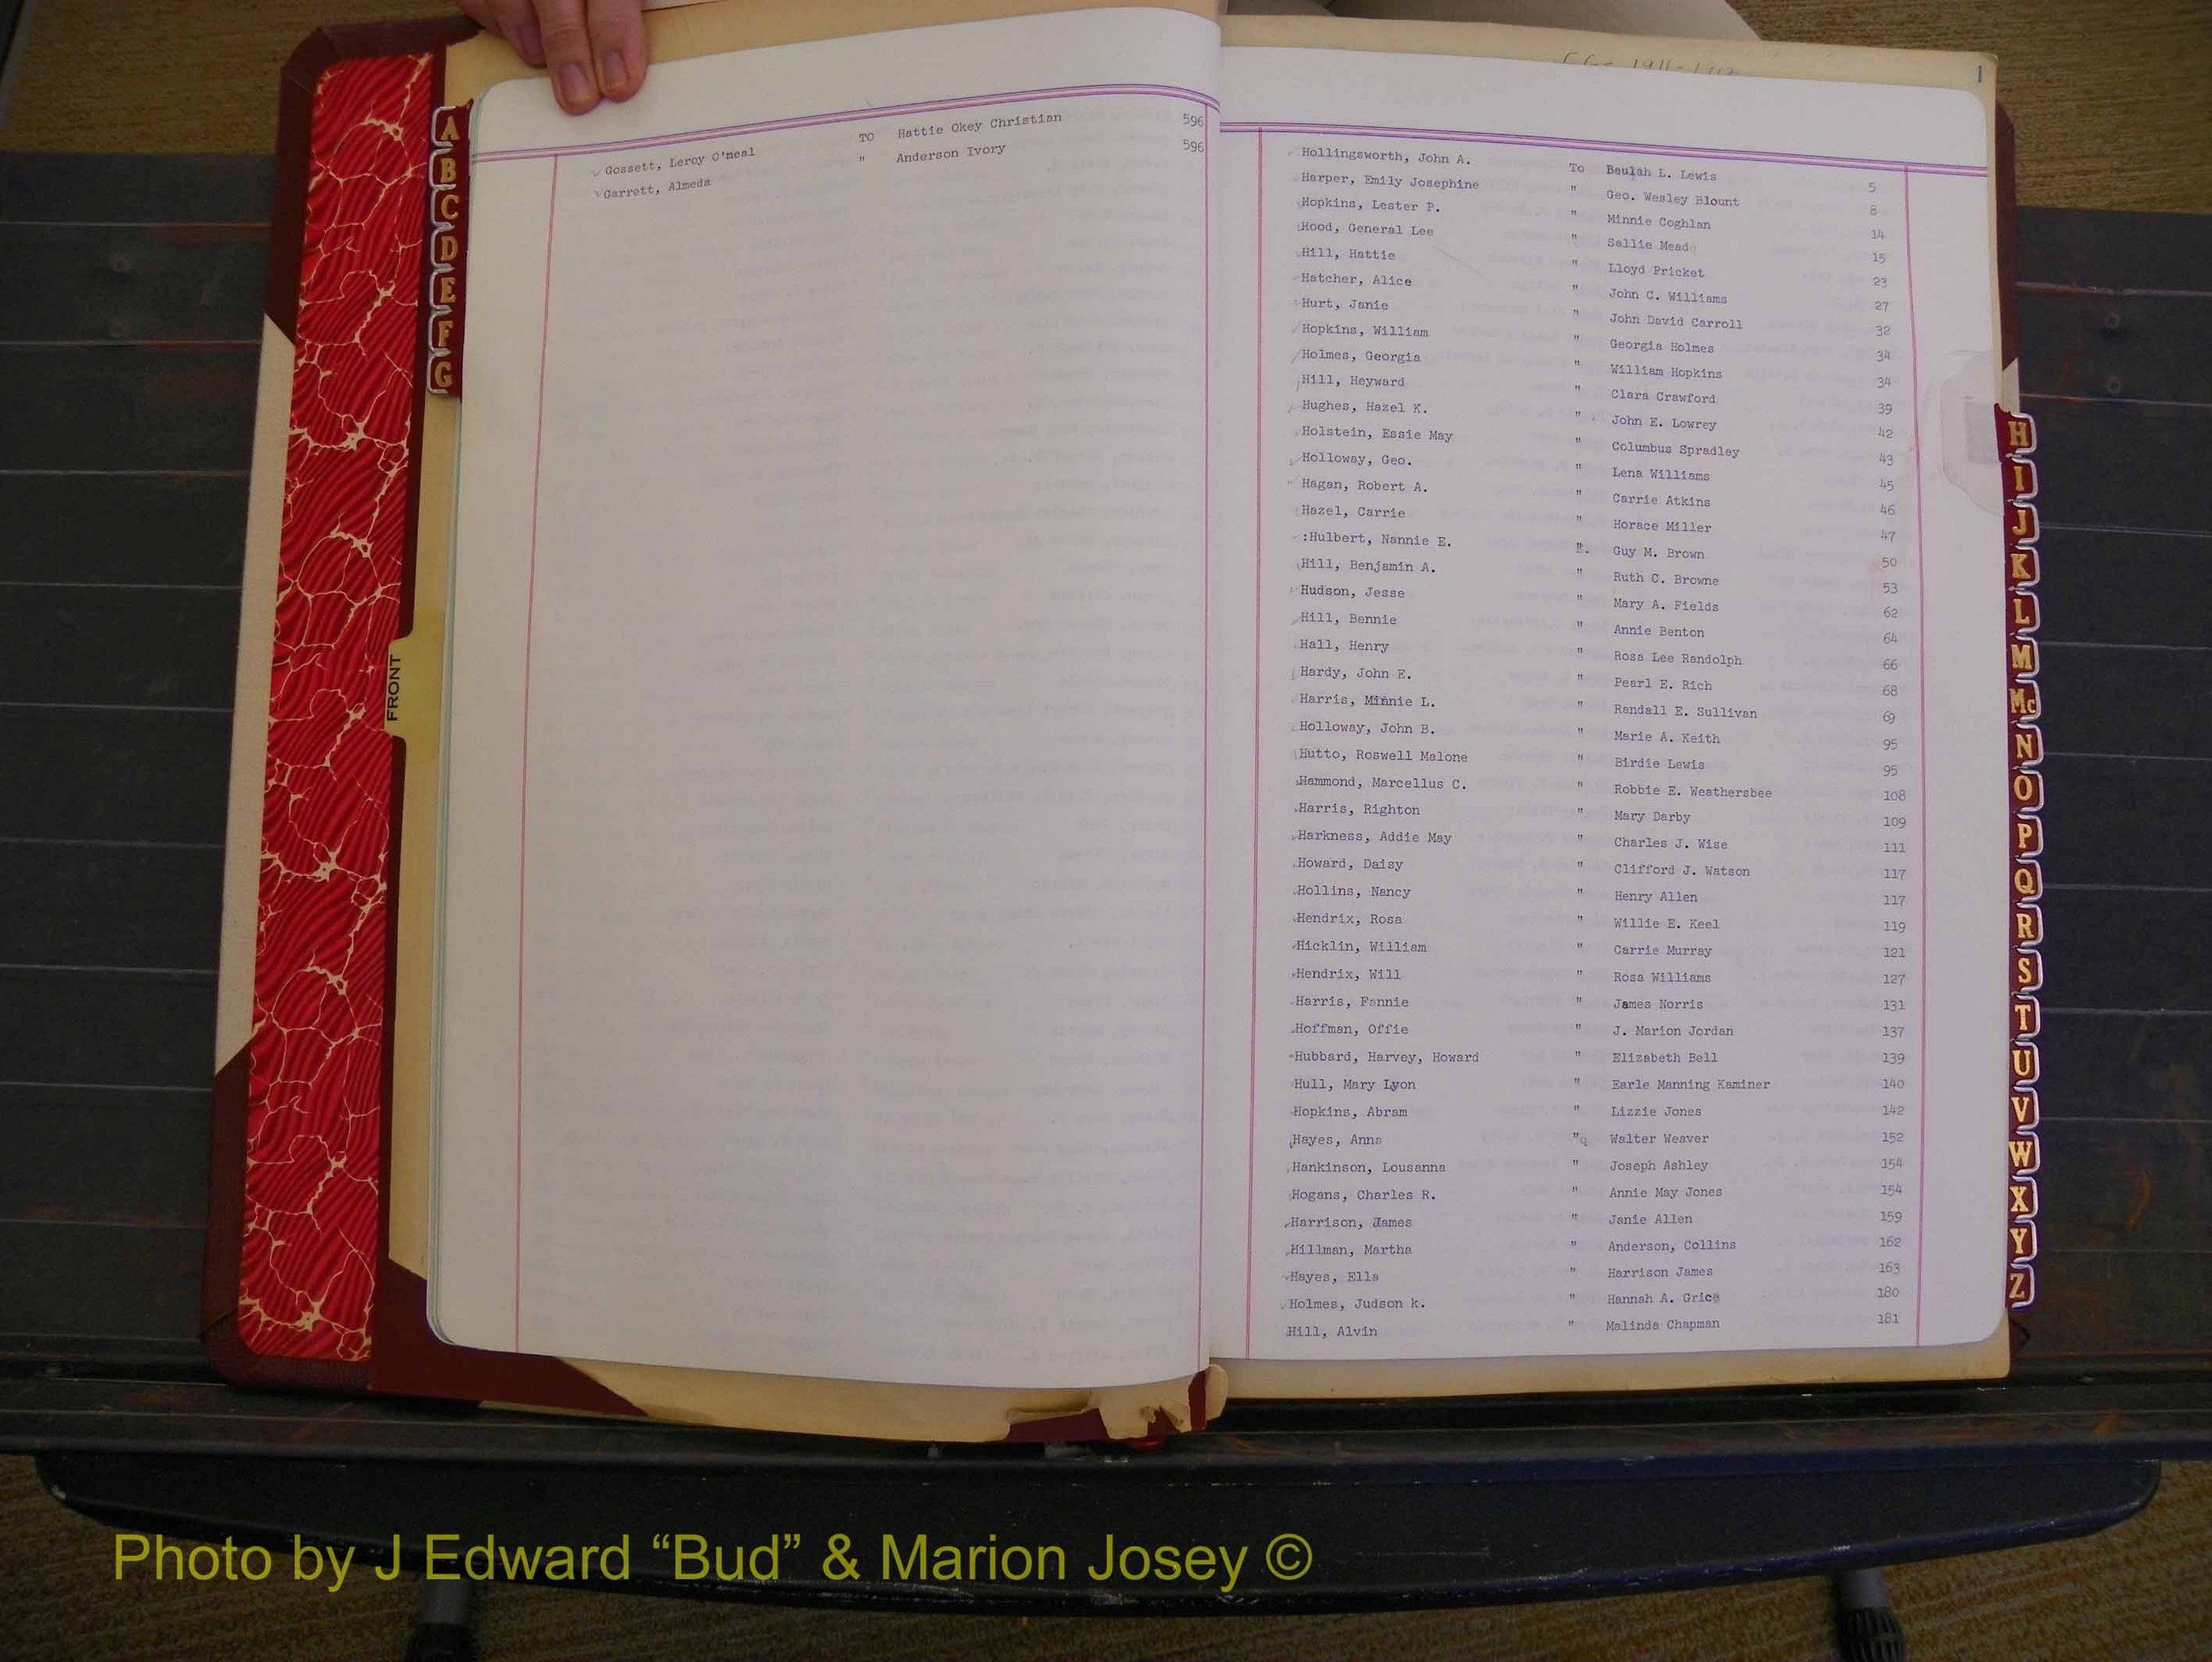 Gossett, Leroy O'neal TO Hattie Okey Christian 596
Garrett, Almeda " Anderson Ivory 596
1
Hollingsworth, John A. To Beulah L. Lewis 5
Harper, Emily Josephine " Geo. Wesley Blount 8
Hopkins, Lester P. " Minnie Coghlan 14
Hood, General Lee " Sallie Mead 15
Hill, Hattie " Lloyd Pricket 23
Hatcher, Alice " John C. Williams 27
Hurt, Janie " John David Carroll 32
Hopkins, William " Georgia Holmes 34
Holmes, Georgia " William Hopkins 34
Hill, Heyward " Clara Crawford 39
Hughes, Hazel K. " John E. Lowrey 42
Holstein, Essie May " Columbus Spradley 43
Holloway, Geo. " Lena Williams 45
Hagan, Robert A. " Carrie Atkins 46
Hazel, Carrie " Horace Miller 47
:Hulbert, Nannie E. ". Guy M. Brown 50
Hill, Benjamin A. " Ruth C. Browne 53
Hudson, Jesse " Mary A. Fields 62
Hill, Bennie " Annie Benton 64
Hall, Henry " Rosa Lee Randolph 66
Hardy, John E. " Pearl E. Rich 68
Harris, Minnie L. " Randall E. Sullivan 69
Holloway, John B. " Marie A. Keith 95
Hutto, Roswell Malone " Birdie Lewis 95
Hammond, Marcellus C. " Robbie E. Weathersbee 108
Harris, Righton " Mary Darby 109
Harkness, Addie May " Charles J. Wise 111
Howard, Daisy " Clifford J. Watson 117
Hollins, Nancy " Henry Allen 117
Hendrix, Rosa " Willie E. Keel 119
Hicklin, William " Carrie Murray 121
Hendrix, Will " Rosa Williams 127
Harris, Fannie " James Norris 131
Hoffman, Offie " J. Marion Jordan 137
Hubbard, Harvey, Howard " Elizabeth Bell 139
Hull, Mary Lyon " Earle Manning Kaminer 140
Hopkins, Abram " Lizzie Jones 142
Hayes, Anna "q Walter Weaver 152
Hankinson, Lousanna " Joseph Ashley 154
Hogans, Charles R. " Annie May Jones 154
Harrison, James " Janie Allen 159
Hillman, Martha " Anderson, Collins 162
Hayes, Ella " Harrison James 163
Holmes, Judson k. " Hannah A. Grice 180
Hill, Alvin " Malinda Chapman 181
A
B
C
D
E
F
G
FRONT
H
I
J
K
L
M
Mc
N
O
P
Q
R
S
T
U
V
W
X
Y
Z
Photo by J Edward “Bud” & Marion Josey ©